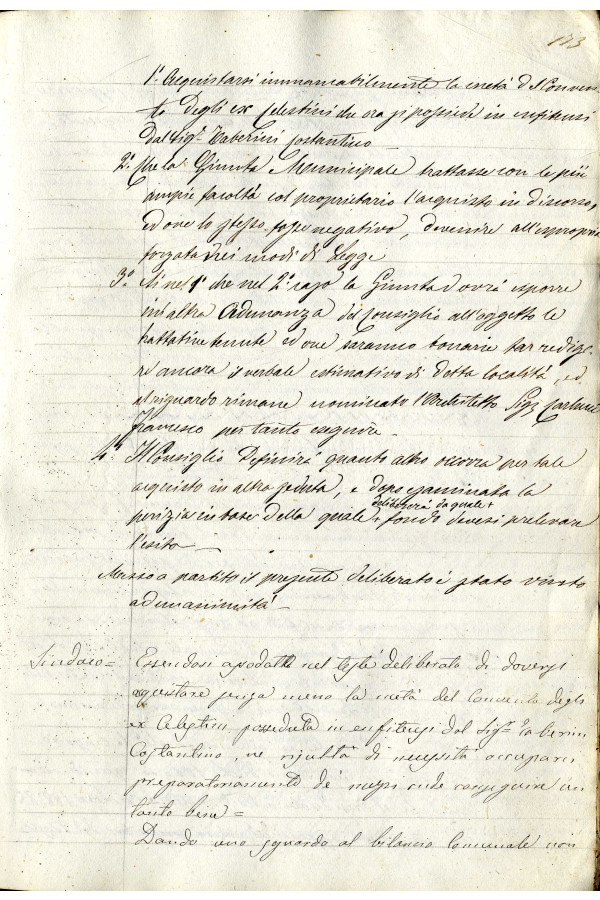 173
1º Acquistarsi immancabilmente la metà del Conven-
to degli ex Celestini che ora si possiede in enfiteusi
dal Sigr Taberini Costantino
2º Che la Giunta Municipale trattasse con le più
ampie facoltà col proprietario l'acquisto in discorso,
ed ove lo stesso fosse negativo, devenire all'espropria
forzata nei modi di Legge
3º Si nel 1º che nel 2º caso la Giunta dovrà esporre
in altra Adunanza del Consiglio all'oggetto le
trattative tenute ed ove saranno bonarie far redige-
re ancora il verbale estimativo di detta località, ed
al riguardo rimane nominato l'Architetto Sigr
Francesco per tanto eseguire
4º Il Consiglio definirà quanto altro occorra per tale
acquisto in altra seduta, e dopo esaminata la
delibererà da quale +
perizia in base della quale + fondo devesi prelevare
l'esito
Messo a partito il presente deliberato è stato vinto
ad unanimità
Sindaco = Essendosi assodato nel testè deliberato di doversi
acquistare senza meno la metà del Convento degli
ex Celestini posseduta in enfiteusi dal Sigr Taberini
Costantino, ne risulta di necessità occuparci
preparatoriamente de' mezzi onde conseguire un
tanto bene =
Dando uno sguardo al bilancio Comunale non